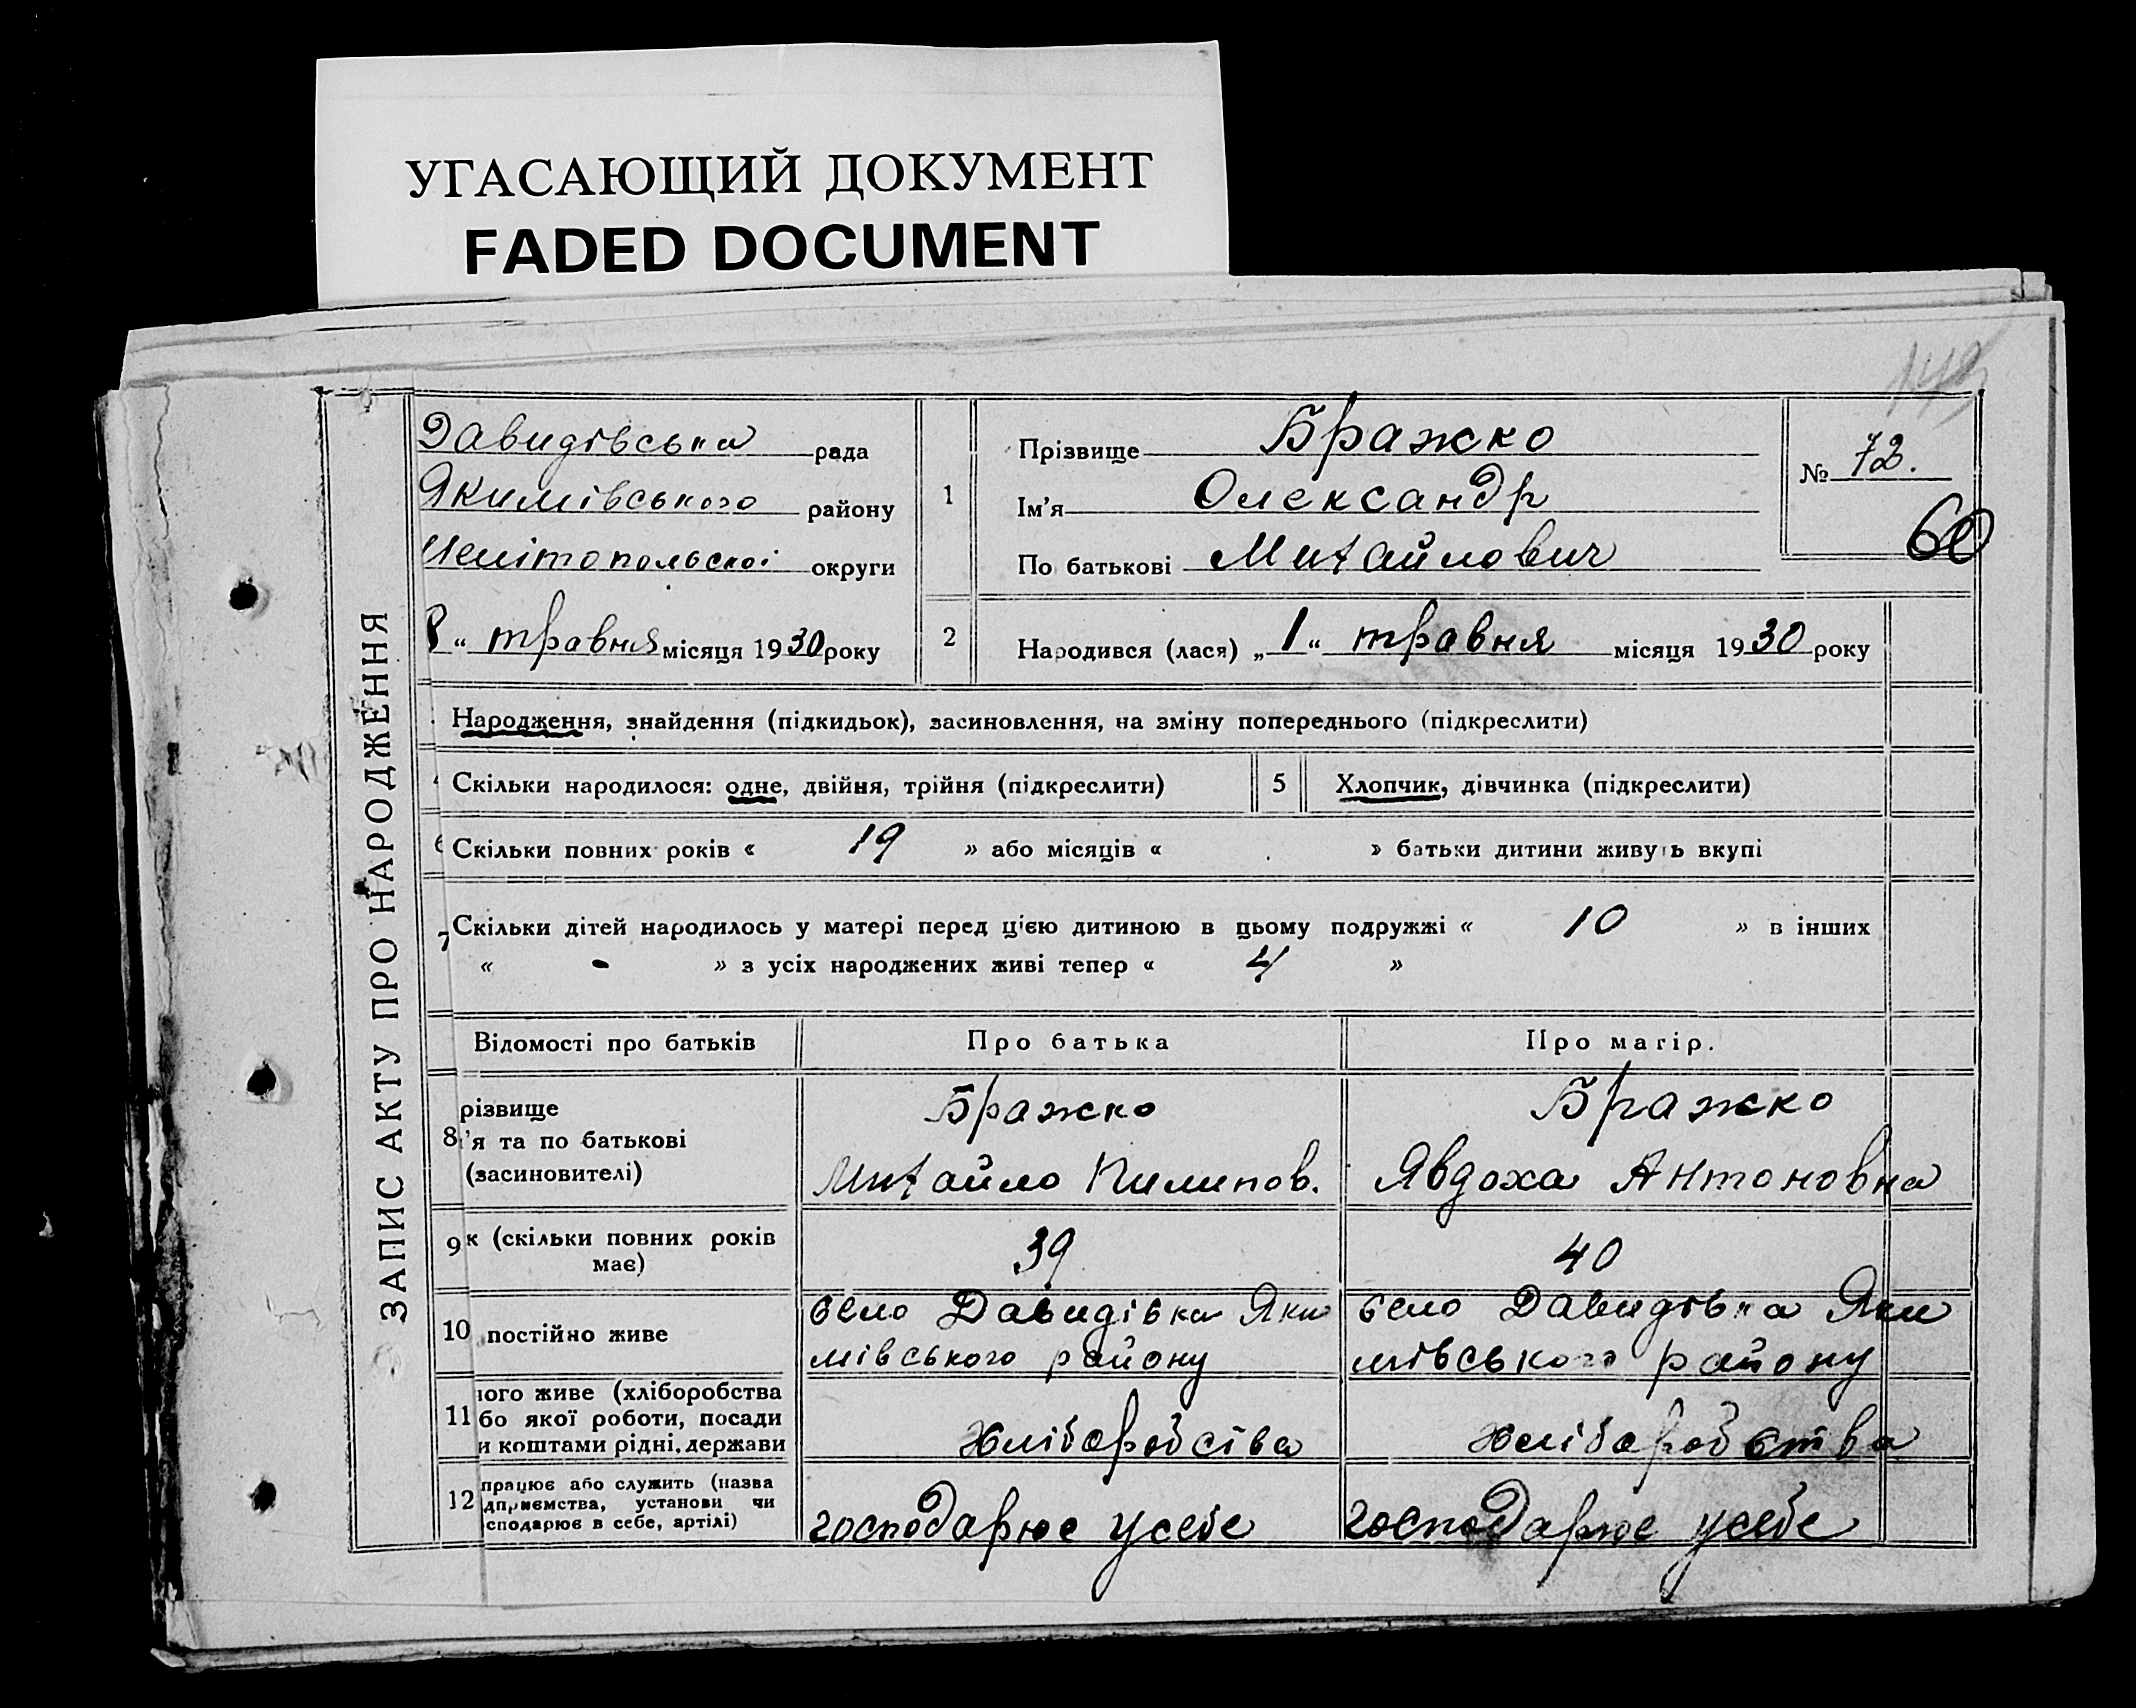 УГАСАЮЩИЙ ДОКУМЕНТ
FADED DOCUMENT
149
ЗАПИС АКТУ ПРО НАРОДЖЕННЯ
Давидівська рада
Якимівського району
Мелітопольскоі округи
8 „ травня місяця 1930 року
1
Прізвище Бражко
Ім'я Олександр
По батькові Михайлович
№ 72.
60
2 Народився (лася) „1“ травня місяця 1930 року
Народження, знайдення (підкидьок), засиновлення, на зміну попереднього (підкреслити)
Скільки народилося: одне, двійня, трійня (підкреслити) 5 Хлопчик, дівчинка (підкреслити)
6 Скільки повних років « 19 » або місяців « » батьки дитини живуть вкупі
7 Скільки дітей народилось у матері перед цією дитиною в цьому подружжі « 10 » в інших
« - » з усіх народжених живі тепер « 4 »
Відомості про батьків Про батька Про матір.
8 різвище
'я та по батькові
(засиновителі)
Бражко
Михайло Пилипов.
Бражко
Явдоха Антоновна
9 к (скільки повних років
має)
39
40
10 постійно живе
село Давидівка Яки
мівського району
село Давидівка Яки
мівського району
11 ного живе (хліборобства
бо якої роботи, посади
и коштами рідні, держави
хліборобства
хліборобства
12 працює або служить (назва
дприємства, установи чи
сподарює в себе, артілі)
господарює усебе
господарює усебе